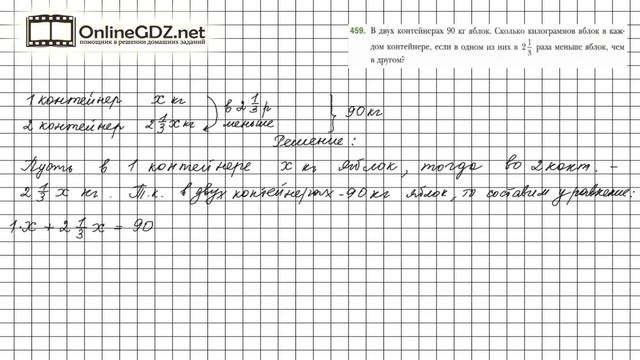 OnlineGDZ.net
помощник в решении домашних заданий
459. В двух контейнерах 90 кг яблок. Сколько килограммов яблок в каж-
дом контейнере, если в одном из них в 2 1/3 раза меньше яблок, чем
в другом?
1 контейнер x кг в 2 1/3 р меньше 90 кг
2 контейнер 2 1/3 x кг
Решение:
Пусть в 1 контейнере x кг яблок, тогда во 2 конт. -
2 1/3 x кг. Т.к. в двух контейнерах - 90 кг яблок, то составим уравнение:
1·x + 2 1/3 x = 90